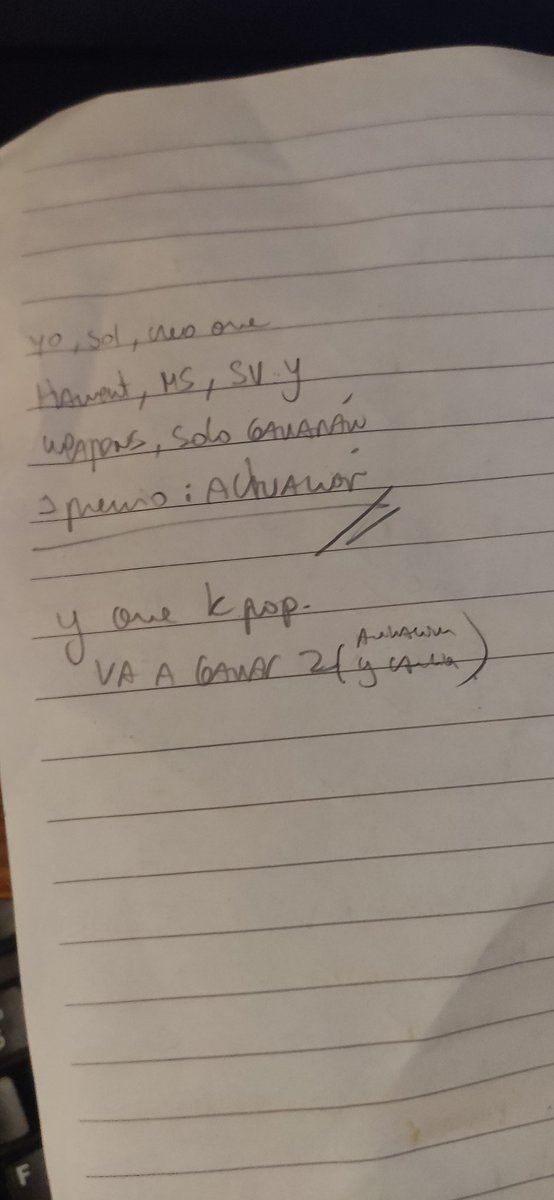 yo, sol, creo que
Hamnet, MS, SV y
Weapons, solo GANARÁN
1 premio: ACTUACIÓN
y que kpop.
VA A GANAR 2 (Animación
y canción)